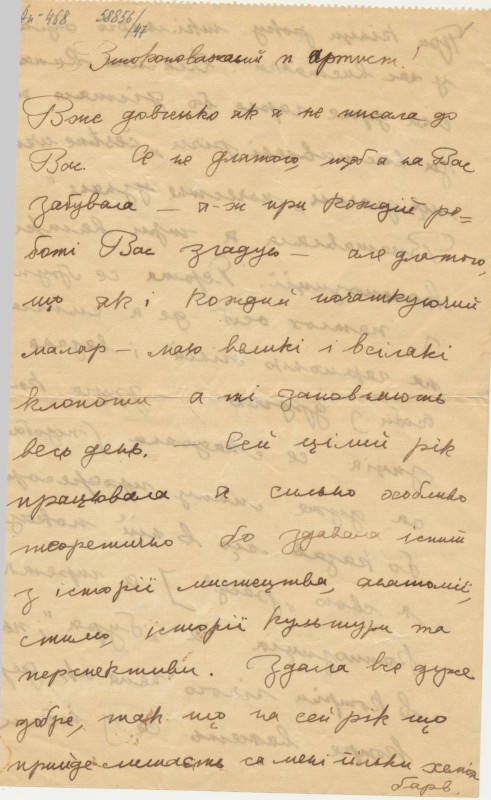 Ап-468 58856/47
Високоповажаний п артист!
Вже довгенько як я не писала до
Вас. Се не длятого, щоб я на Вас
забувала — я-ж при кождій ро=
боті Вас згадую — але длятого,
що як і кождий початкуючий
маляр — маю великі і всілякі
клопоти а ті заповнюють
весь день. — Сей цілий рік
працювала я сильно особливо
теоретично бо здавала іспит
з історії мистецтва, анатомії,
стилю, історії культури та
перспективи. Здала все дуже
добре, так що на сей рік що
прийде лишаєть ся мені тільки хемія
барв.